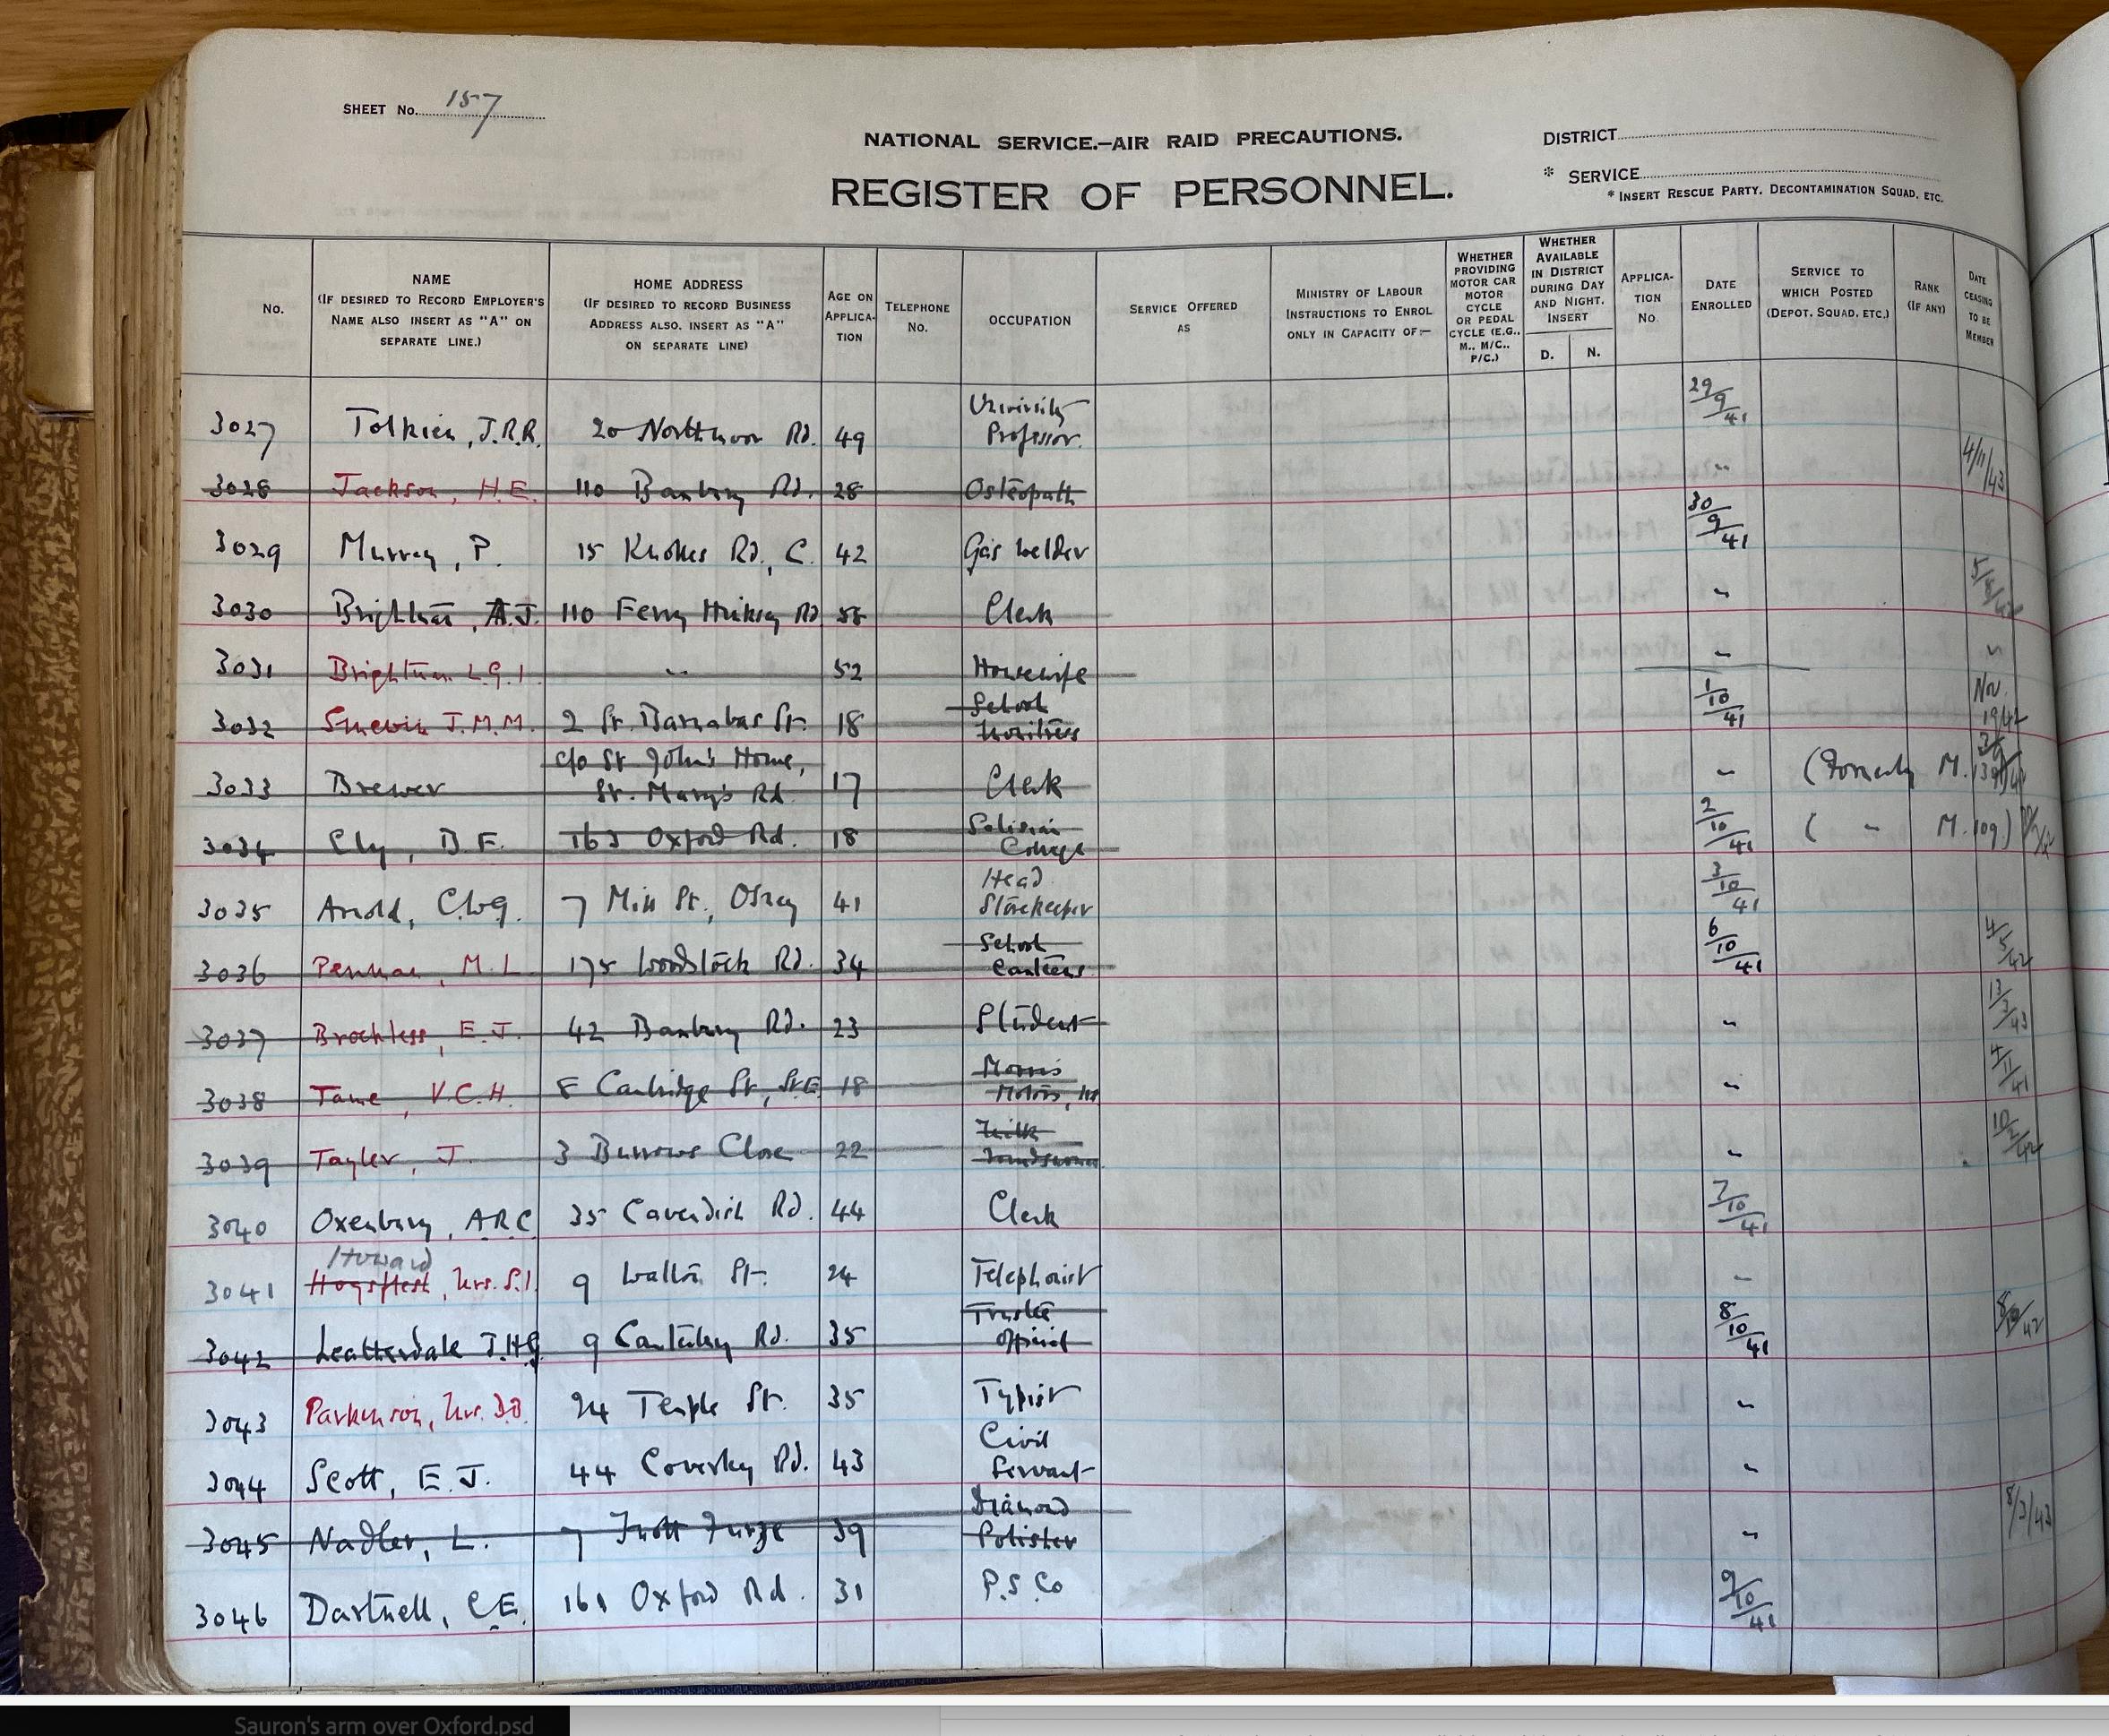 SHEET No. 157
NATIONAL SERVICE.—AIR RAID PRECAUTIONS.
REGISTER OF PERSONNEL.
DISTRICT
* SERVICE
* INSERT RESCUE PARTY, DECONTAMINATION SQUAD, ETC.
No.
NAME
(IF DESIRED TO RECORD EMPLOYER'S
NAME ALSO INSERT AS "A" ON
SEPARATE LINE.)
HOME ADDRESS
(IF DESIRED TO RECORD BUSINESS
ADDRESS ALSO, INSERT AS "A"
ON SEPARATE LINE)
AGE ON
APPLICA-
TION
TELEPHONE
No.
OCCUPATION
SERVICE OFFERED
AS
MINISTRY OF LABOUR
INSTRUCTIONS TO ENROL
ONLY IN CAPACITY OF:—
WHETHER
PROVIDING
MOTOR CAR
MOTOR
CYCLE
OR PEDAL
CYCLE (E.G.,
M., M/C.,
P/C.)
WHETHER
AVAILABLE
IN DISTRICT
DURING DAY
AND NIGHT.
INSERT
D. N.
APPLICA-
TION
No.
DATE
ENROLLED
SERVICE TO
WHICH POSTED
(DEPOT, SQUAD, ETC.)
RANK
(IF ANY)
DATE
CEASING
TO BE
MEMBER
3027 Tolkien, J.R.R. 20 Northmoor Rd. 49 University Professor 29/9/41
3028 Jackson, H.E. 110 Banbury Rd. 28 Osteopath " 4/11/43
3029 Murray, P. 15 Rd., C. 42 Gas Welder 30/9/41
3030 A.J. 110 Ferry Hinksey Rd Clerk "
3031 L.G.I. " 52 Housewife " "
3032 J.M.M. 2 St. Barnabas St. 18 School 1/10/41 Nov. 1942
3033 Brewer c/o St John's Home, St. Mary's Rd. 17 Clerk " (Formerly M.
3034 Ely, B.F. 163 Oxford Rd. 18 College 2/10/41 ( " M. 109)
3035 Arnold, C.W.G. 7 Mill St., Osney 41 Head Storekeeper 3/10/41
3036 M.L. 175 Woodstock Rd. 34 School Canteens 6/10/41 4/5/42
3037 Brockless, E.J. 42 Banbury Rd. 23 Student " 13/3/43
3038 Tame, V.C.H. 8 St, St.E 18 Morris Motors, Ltd " 4/11/41
3039 Tayler, J. 3 Burrows Close 22 Milk Roundswoman " 10/2/42
3040 Oxenbury, A.R.C. 35 Cavendish Rd. 44 Clerk 7/10/41
Howard
3041 Mrs. S.I. 9 Walton St. 24 Telephonist "
3042 Leatherdale J.H.G. 9 Canterbury Rd. 35 Trustee Official 8/10/41
3043 Parkinson, Mrs. D.B. 24 Temple St. 35 Typist "
3044 Scott, E.J. 44 Coverley Rd. 43 Civil Servant "
3045 Nadler, L. 7 Furze 39 Diamond Polisher " 8/3/43
3046 Dartnell, C.E. 161 Oxford Rd. 31 P.S. Co 9/10/41
Sauron's arm over Oxford.psd